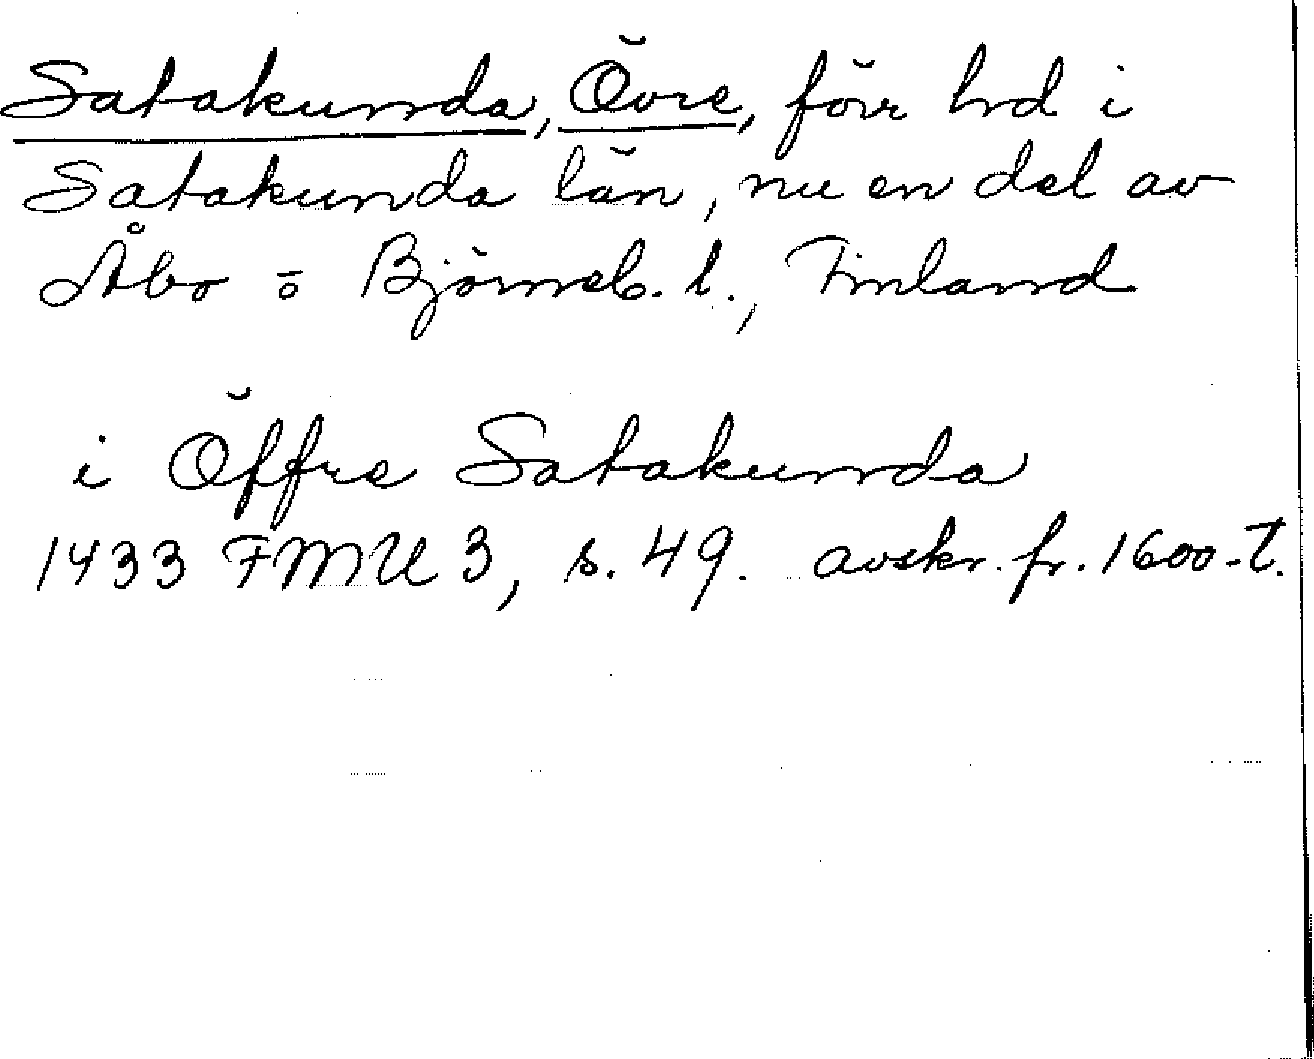 Satakunda, Övre, förr hrd i
Satakunda län, nu en del av
Åbo o Björneb. l., Finland
i Öffre Satakunda
1433 FMU 3, s. 49. avskr. fr. 1600-t.